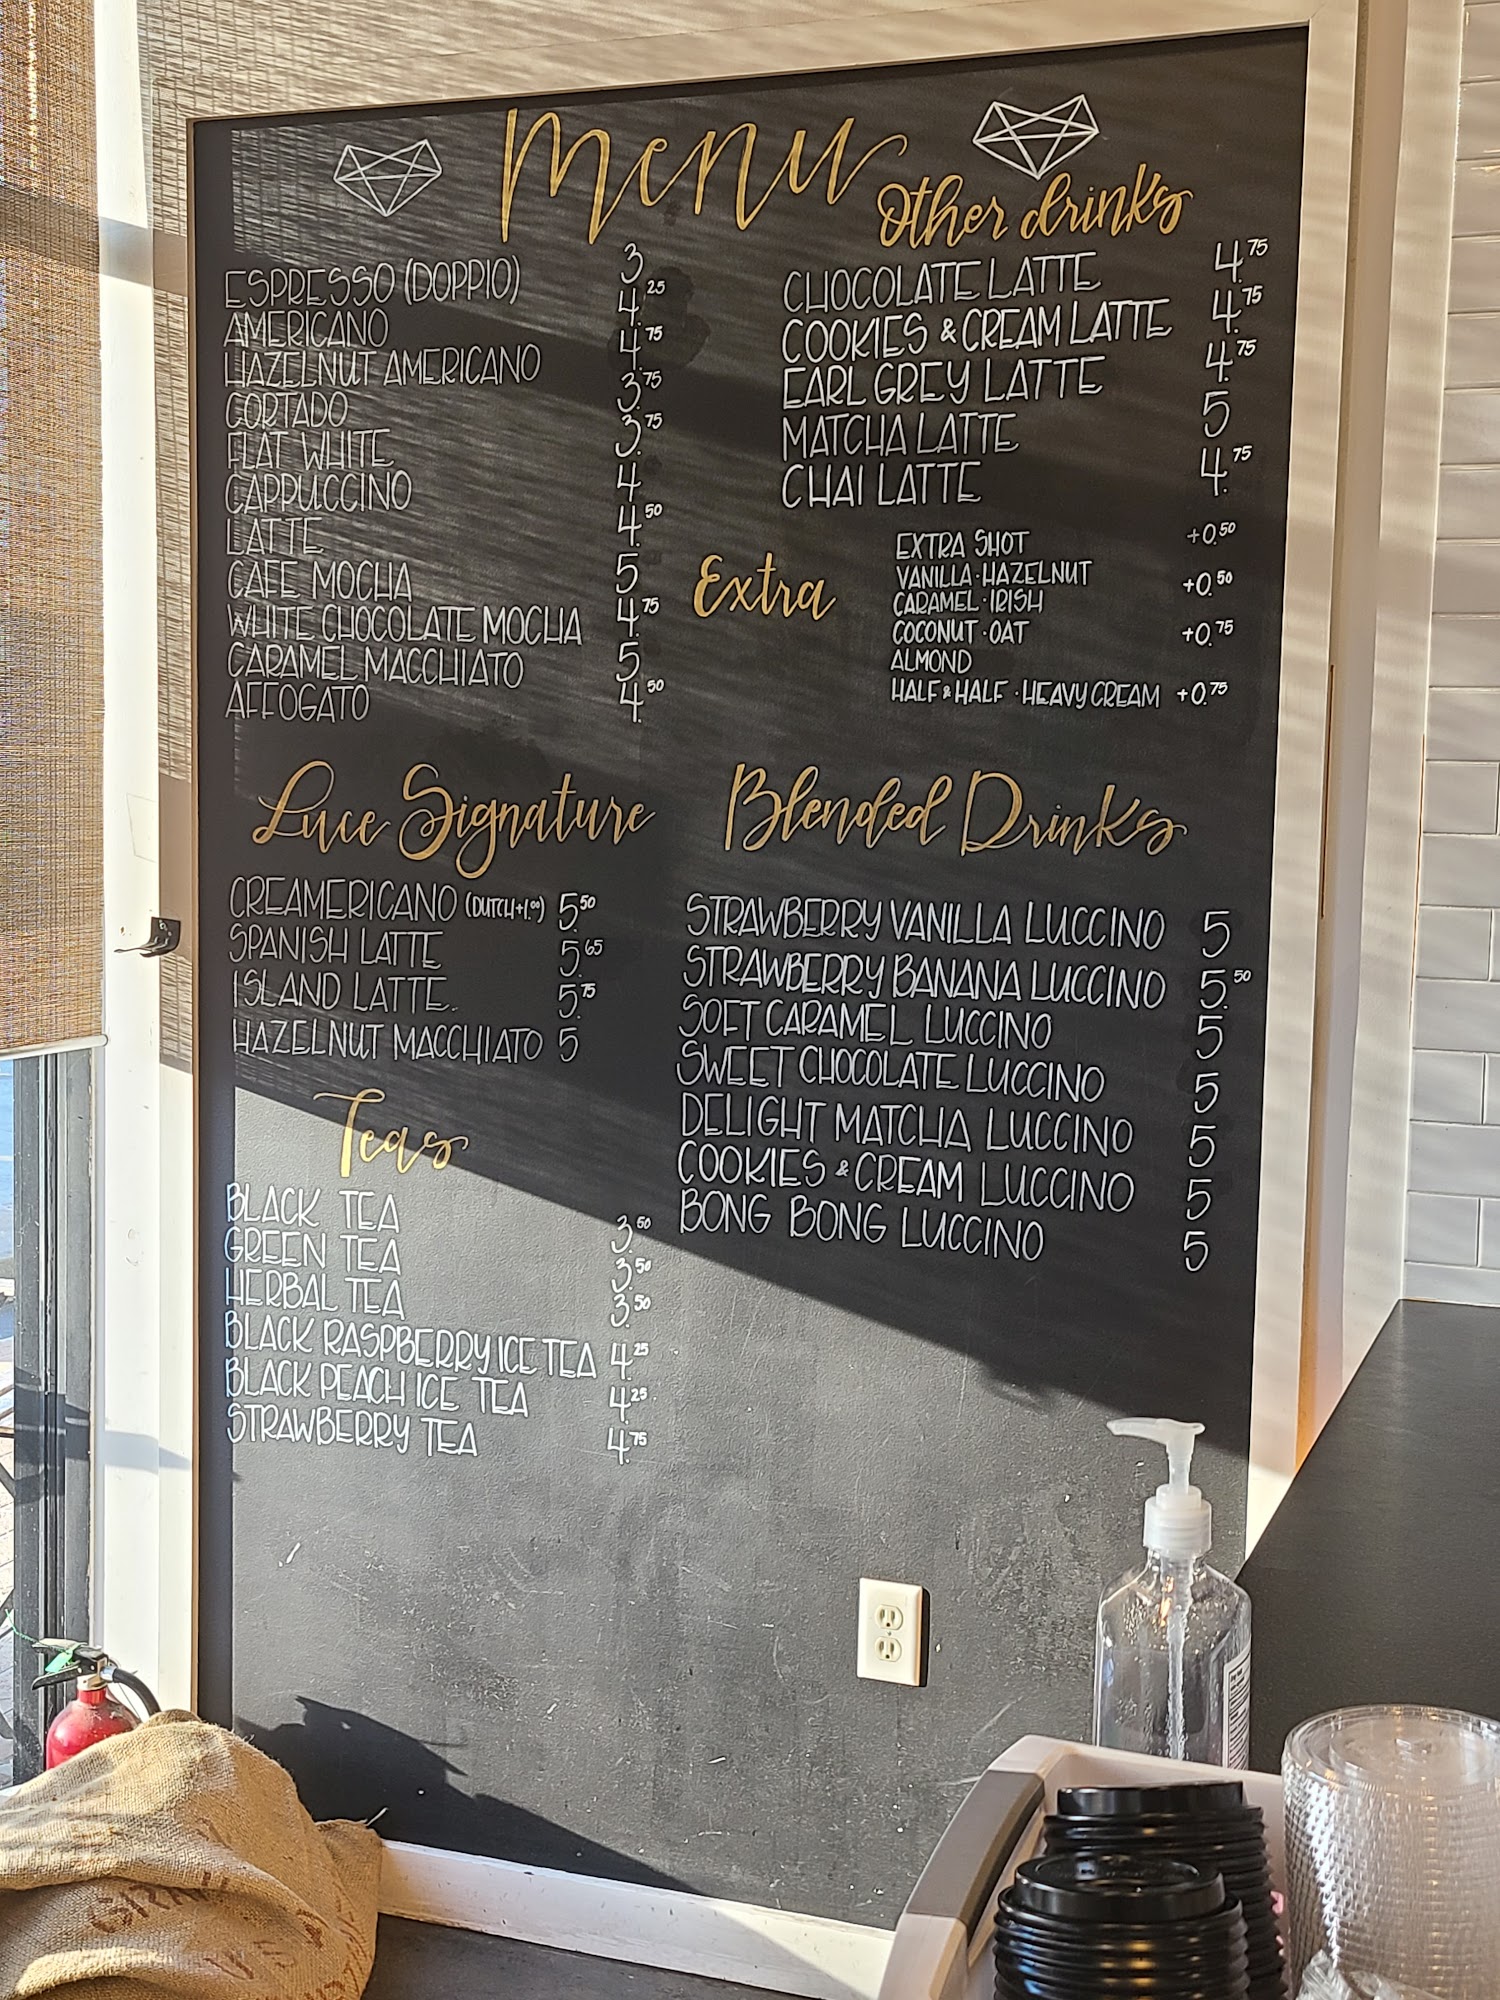 Menu
ESPRESSO (DOPPIO) 3
AMERICANO 4.25
HAZELNUT AMERICANO 4.75
CORTADO 3.75
FLAT WHITE 3.75
CAPPUCCINO 4
LATTE 4.50
CAFE MOCHA 5
WHITE CHOCOLATE MOCHA 4.75
CARAMEL MACCHIATO 5
AFFOGATO 4.50
Other drinks
CHOCOLATE LATTE 4.75
COOKIES & CREAM LATTE 4.75
EARL GREY LATTE 4.75
MATCHA LATTE 5
CHAI LATTE 4.75
Extra
EXTRA SHOT +0.50
VANILLA · HAZELNUT +0.50
CARAMEL · IRISH
COCONUT · OAT +0.75
ALMOND
HALF & HALF · HEAVY CREAM +0.75
Luce Signature
CREAMERICANO (DUTCH +1.00) 5.50
SPANISH LATTE 5.65
ISLAND LATTE 5.75
HAZELNUT MACCHIATO 5
Teas
BLACK TEA 3.50
GREEN TEA 3.50
HERBAL TEA 3.50
BLACK RASPBERRY ICE TEA 4.25
BLACK PEACH ICE TEA 4.25
STRAWBERRY TEA 4.75
Blended Drinks
STRAWBERRY VANILLA LUCCINO 5
STRAWBERRY BANANA LUCCINO 5.50
SOFT CARAMEL LUCCINO 5
SWEET CHOCOLATE LUCCINO 5
DELIGHT MATCHA LUCCINO 5
COOKIES & CREAM LUCCINO 5
BONG BONG LUCCINO 5